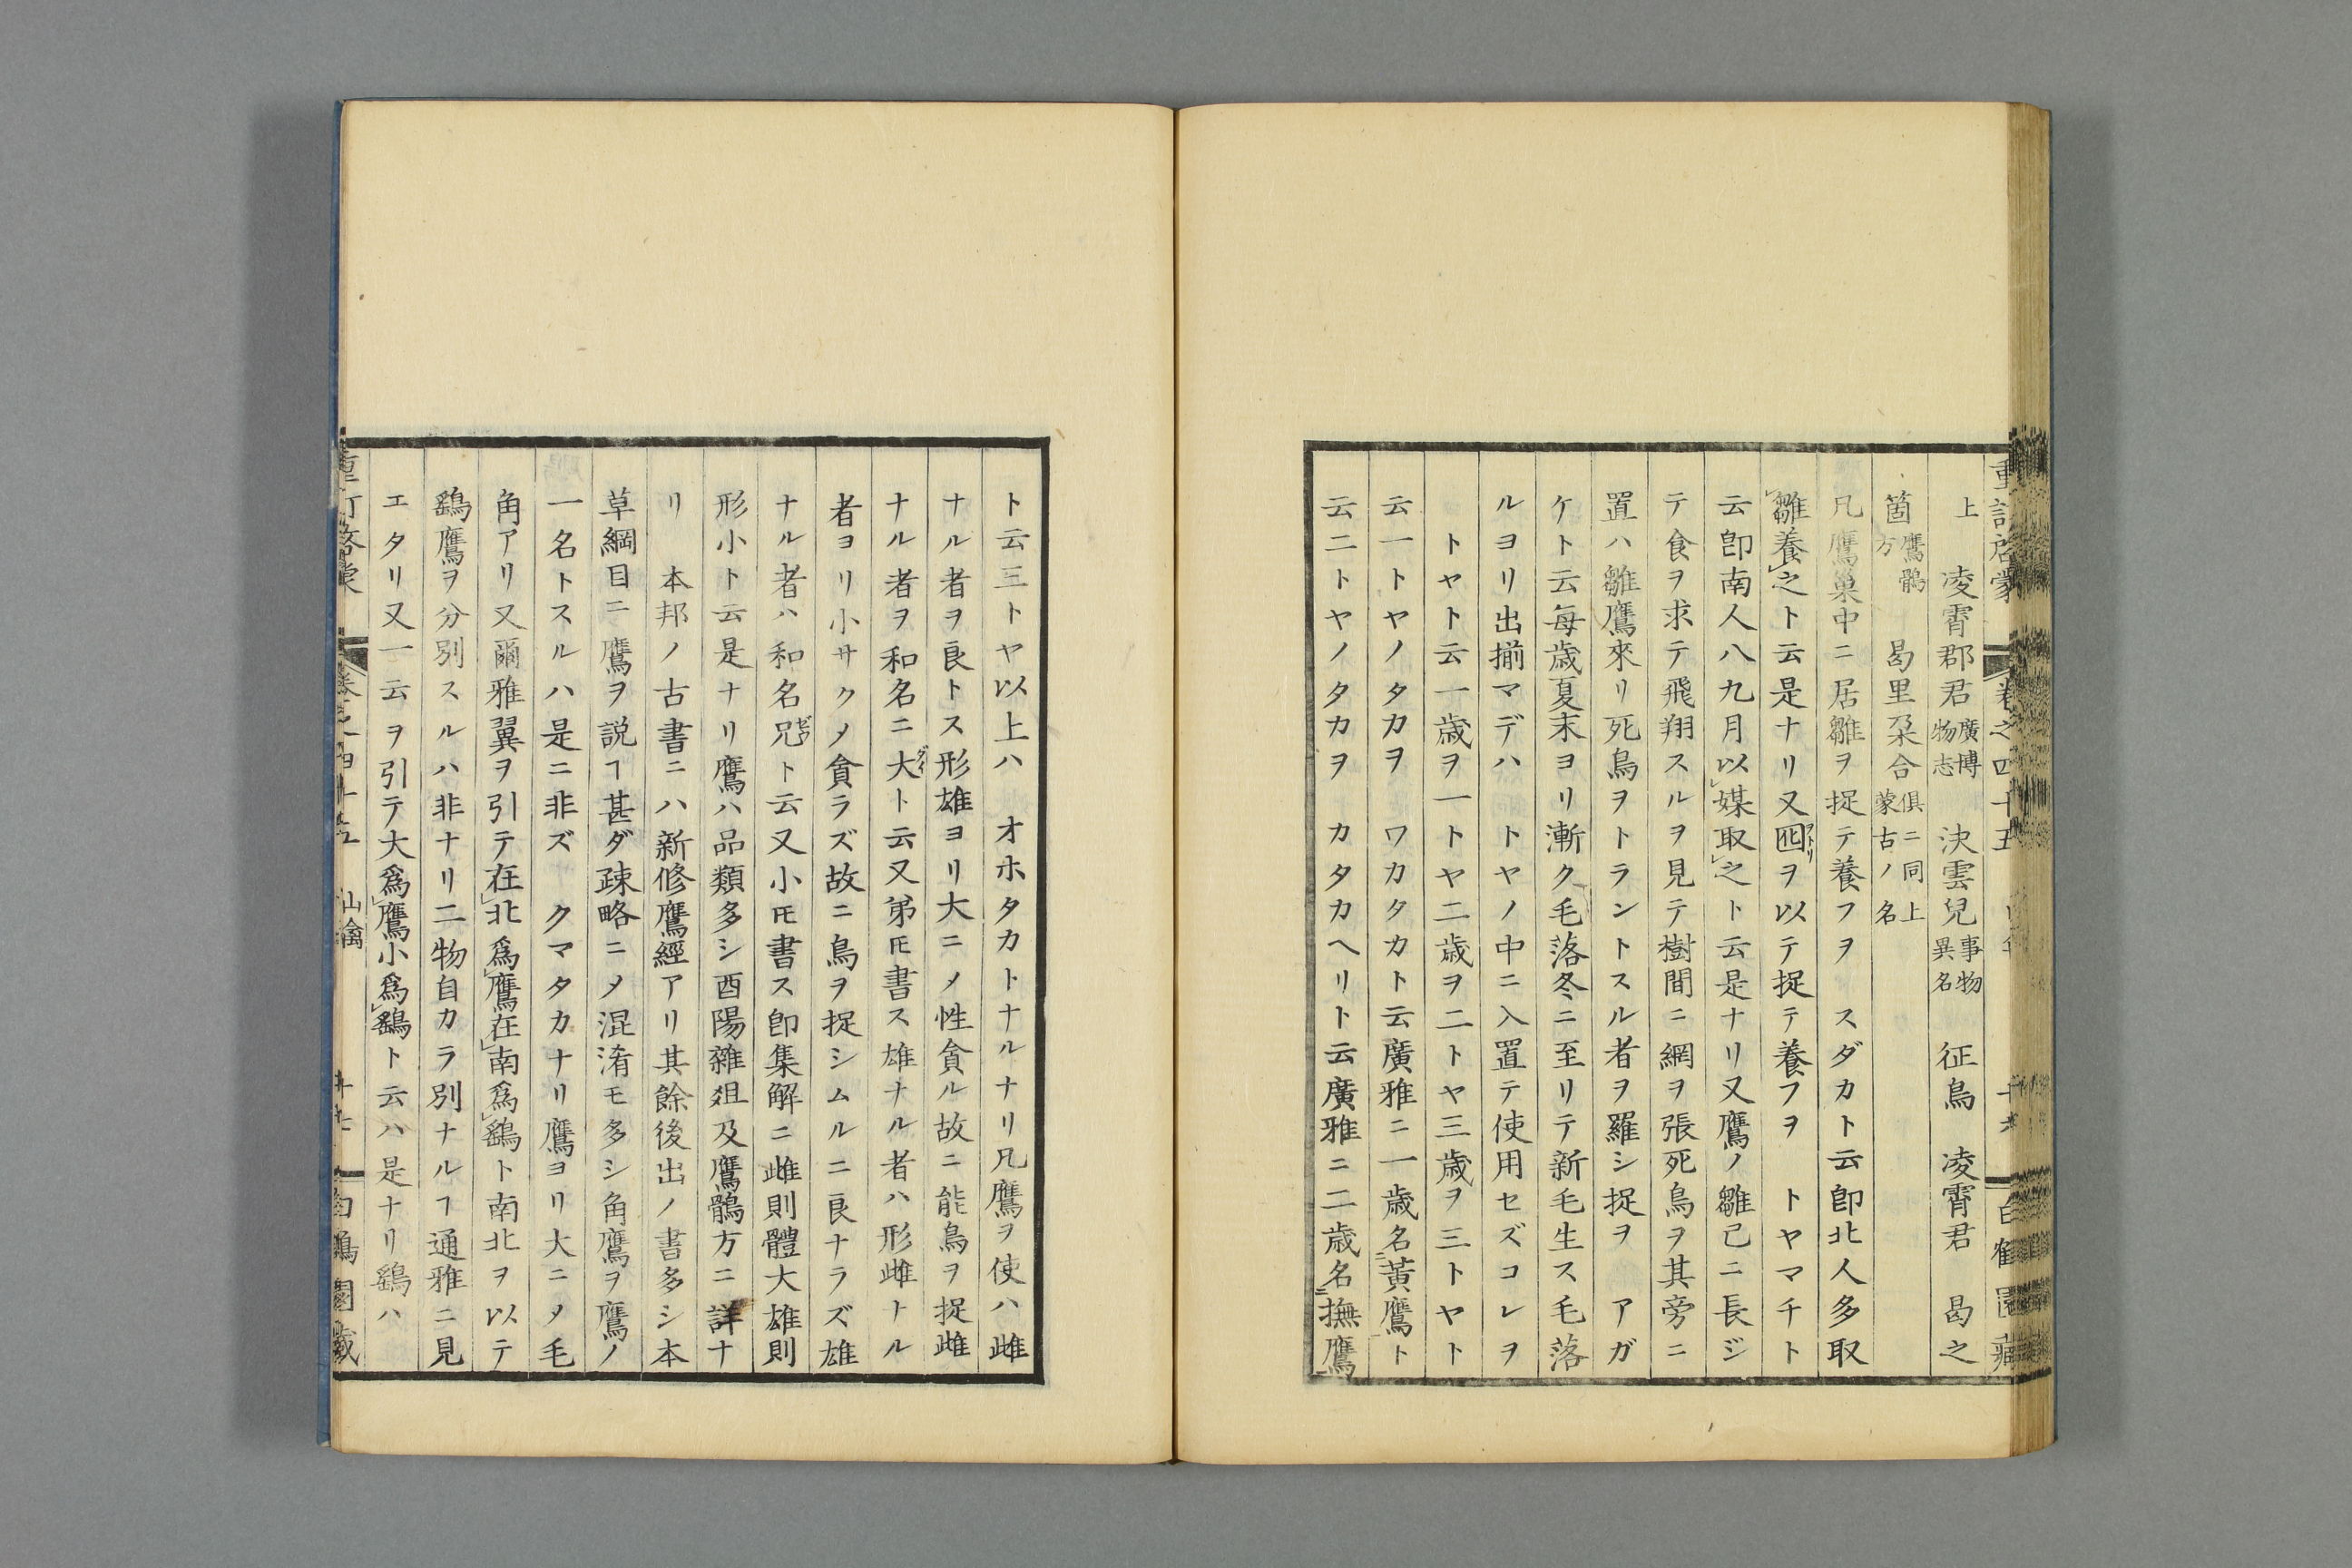 重訂啓蒙 卷之四十五 白鶴園藏
上 凌霄郡君 廣博物志 決雲兒 事物異名 征鳥 凌霄君 曷之
箇 鷹鶻方 曷里朶合 俱ニ同上蒙古ノ名
凡鷹巢中ニ居雛ヲ捉テ養フヲ スダカト云卽北人多取
雛養之ト云是ナリ又囮ヲトリヲ以テ捉テ養フヲ トヤマチト
云卽南人八九月以媒取之ト云是ナリ又鷹ノ雛已ニ長ジ
テ食ヲ求テ飛翔スルヲ見テ樹間ニ網ヲ張死鳥ヲ其旁ニ
置ハ雛鷹來リ死鳥ヲトラントスル者ヲ羅シ捉ヲ アガ
ケト云每歲夏末ヨリ漸ク毛落冬ニ至リテ新毛生ス毛落
ルヨリ出揃マデハ トヤノ中ニ入置テ使用セズコレヲ
トヤト云一歲ヲ一トヤ二歲ヲ二トヤ三歲ヲ三トヤト
云一トヤノタカヲ ワカタカト云廣雅ニ一歲名黃鷹ト
云二トヤノタカヲ カタカヘリト云廣雅ニ二歲名撫鷹
ト云三トヤ以上ハ オホタカトナルナリ凡鷹ヲ使ハ雌
ナル者ヲ良トス形雄ヨリ大ニメ性貪ル故ニ能鳥ヲ捉雌
ナル者ヲ和名ニ大ダイト云又弟𪜈書ス雄ナル者ハ形雌トル
者ヨリ小サクメ貪ラズ故ニ鳥ヲ捉シムルニ良ナラズ雄
ナル者ハ和名兄ト云又小𪜈書ス卽集解ニ雌則體大雄則
形小ト云是ナリ鷹ハ品類多シ酉陽雜俎及鷹鶻方ニ詳ナ
リ 本邦ノ古書ニハ新修鷹經アリ其餘後出ノ書多シ本
草綱目ニ鷹ヲ説ヿ甚ダ疎略ニメ混淆モ多シ角鷹ヲ鷹ノ
一名トスルハ是ニ非ズ クマタカナリ鷹ヨリ大ニメ毛
角アリ又爾雅翼ヲ引テ在北爲鷹在南爲鷂ト南北ヲ以テ
鷂鷹ヲ分別スルハ非ナリ二物自カラ別ナルヿ通雅ニ見
エタリ又一云ヲ引テ大爲鷹小爲鷂ト云ハ是ナリ鷂ハ
重訂啓蒙 卷之四十五 山禽 白鶴園藏